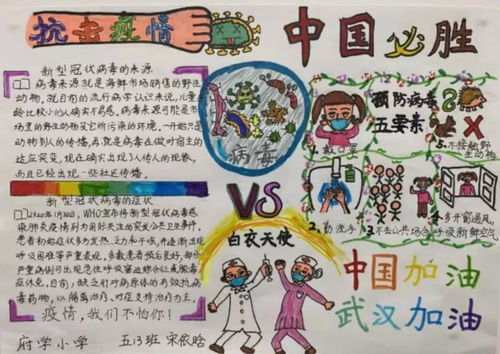 抗击疫情
中国必胜
新型冠状病毒的来源
病毒来源就是海鲜市场销售的野生
动物,就目前的流行病学认识来说,儿童年
龄比较小的人确实不易感,病毒来源可能是市
场里的野生动物及它所污染的环境,一开始只是
动物到人的传播,再就是病毒在做叶宿主的
这应突变,现在确实出现了人传人的现象,
而且已经出现一些社区传播。
新型冠状病毒的症状
2020年1月30日,WHO宣布将新型冠状病毒感
染肺炎疫情列为国际关注的突发公共卫生事件,
患者初始症状多为发热、乏力和干咳,并逐渐出现
呼吸困难等严重表现,多数患者预后良好,部分
严重病例可出现急性呼吸窘迫
症休克,目前,缺乏针对病原体的有效抗
病毒药物,以隔离治疗、对症支持治疗为主。
疫情,我们不怕你!
府学小学 五13班 宋依晗
病毒
VS
白衣天使
预防病毒
五要素
1.戴口罩
2.勤洗手
3.不去公共场合
4.多开窗通风,
呼吸新鲜空气
5.不接触野
生动物
中国加油
武汉加油